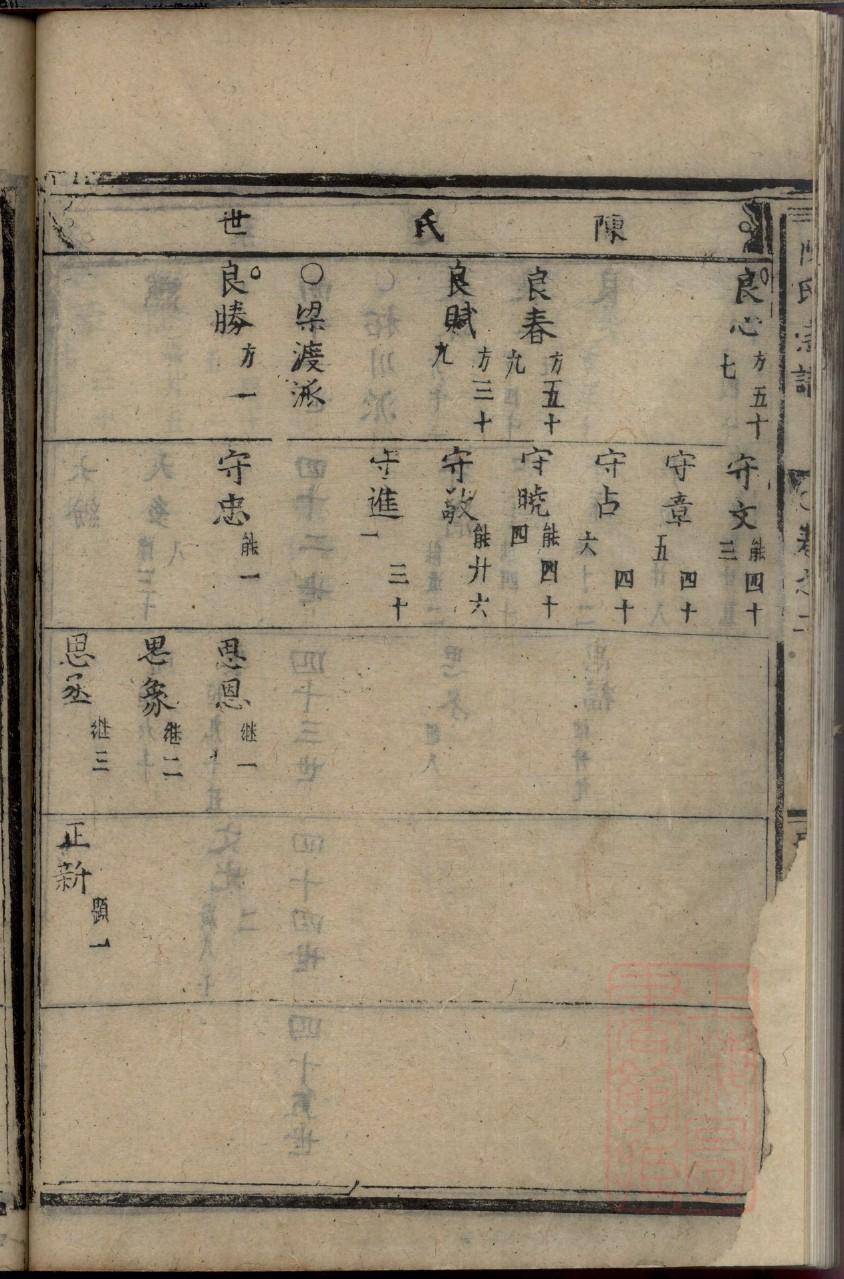 陳氏宗譜
卷之二
陳氏世
良心 方五十七
良春 方五十九
良賦 方三十九
○梁渡派
良勝 方一
守文 能四十三
守章 四十五
守占 四十六
守曉 能四十四
守敬 能廿六
守進 三十一
守忠 能一
思恩 继一
思象 继二
思丞 继三
正新 顯一
上海圖書館藏